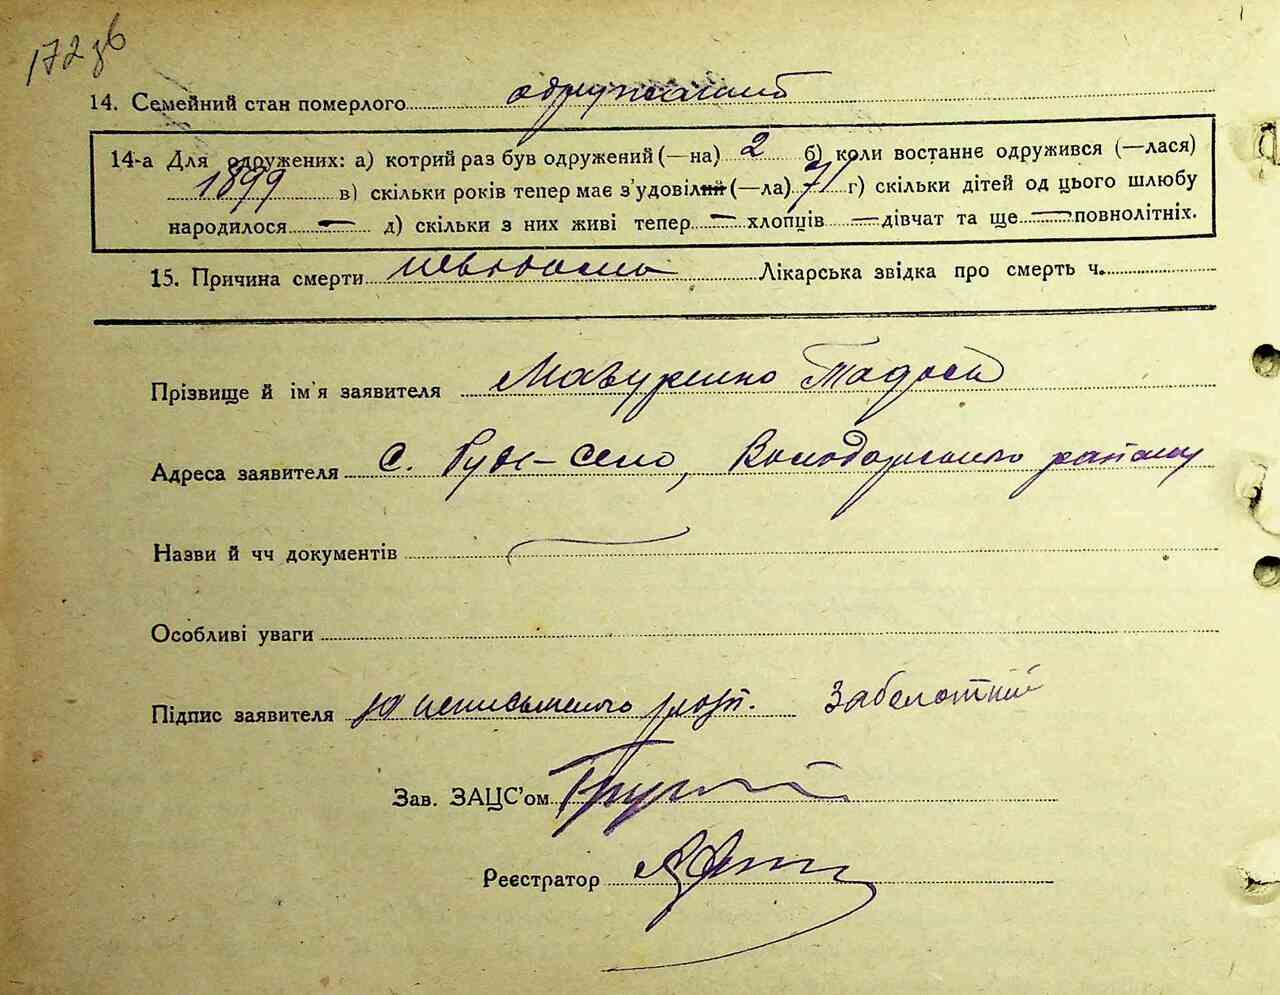 172 зв
14. Семейний стан померлого одружений
14-а Для одружених: а) котрий раз був одружений (—на) 2 б) коли востаннє одружився (—лася)
1899 в) скільки років тепер має з'удовілий (—ла) 71 г) скільки дітей од цього шлюбу
народилося — д) скільки з них живі тепер — хлопців — дівчат та ще — повнолітніх.
15. Причина смерти невідома Лікарська звідка про смерть ч.
Прізвище й ім'я заявителя Мазуренко Тодось
Адреса заявителя С. Руде-Село, Володарського району
Назви й чч документів —
Особливі уваги
Підпис заявителя за неписьменого розп. Заболотний
Зав. ЗАЦС'ом
Реєстратор